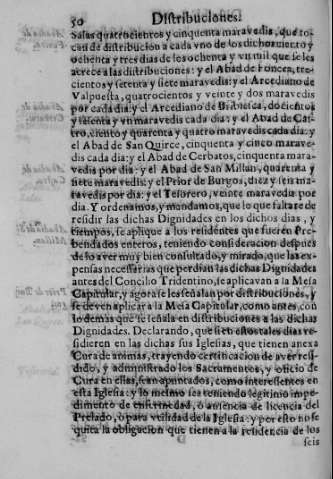 50 Distribuciones.
Salas quatrocientos y cinquenta maravedis, que to-
can de distribucion a cada vno de los dichos ciento y
ochenta y tres dias de los ochenta y vn mil que se les
acrece a las distribuciones: y el Abad de Foncea, tre-
cientos y setenta y siete maravedis: y el Arcediano de
Valpuesta, quatrocientos y veinte y dos maravedis
por cada dia: y el Arcediano de Birbiesca, docientos
y setenta y vn maravedis cada dia: y el Abad de Cas-
tro, ciento y quarenta y quatro maravedis cada dia: y
el Abad de San Quirce, cinquenta y cinco marave-
dis cada dia: y el Abad de Cerbatos, cinquenta mara-
vedis por dia: y el Abad de San Millan, quarenta y
siete maravedis: y el Prior de Burgos, diez y seis ma-
ravedis por dia: y el Tesorero, veinte maravedis por
dia. Y ordenamos, y mandamos, que lo que faltare de
residir las dichas Dignidades en los dichos dias, y
tiempos, se aplique a los residentes que fueren Pre-
bendados enteros, teniendo consideracion despues
de lo aver muy bien consultado, y mirado, que las ex-
pensas necessarias que perdian las dichas Dignidades
antes del Concilio Tridentino, se aplicavan a la Mesa
Capitular, y agora se les señalan por distribuciones, y
se deven aplicar a la Mesa Capitular, como antes, con
lo demas que se señala en distribuciones a las dichas
Dignidades. Declarando, que si en estos tales dias re-
sidieren en las dichas sus Iglesias, que tienen anexa
Cura de animas, trayendo certificacion de aver resi-
dido, y administrado los Sacramentos, y oficio de
Cura en ellas, sean apuntados, como interessentes en
esta Iglesia: y lo mesmo sea teniendo legitimo impe-
dimento de enfermedad, ò ausencia de licencia del
Prelado, ò para vtilidad de la Iglesia: y por esto no se
quita la obligacion que tienen a la residencia de los
seis